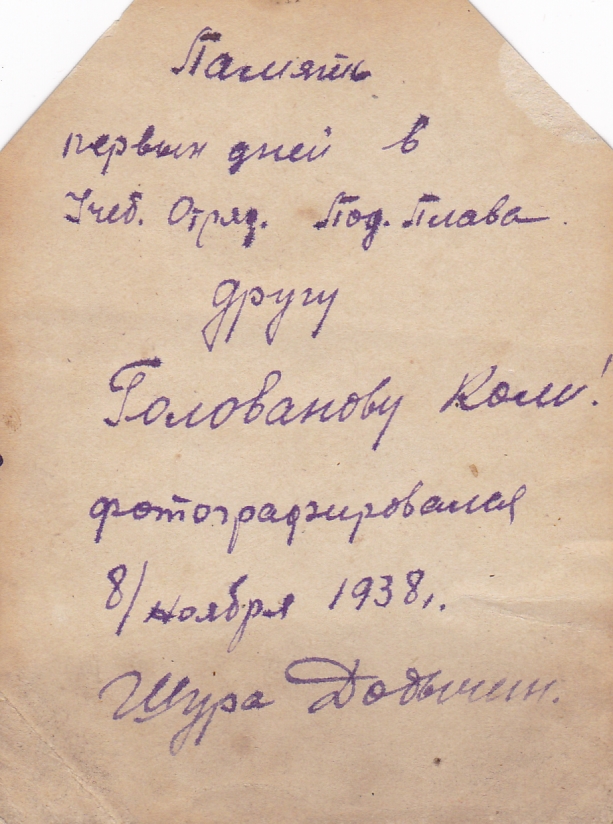 Память
первых дней в
Учеб. Отряд. Под. Плава
другу
Голованову Коли!
фотографировался
8/ноября 1938 г.
Шура Добычин.